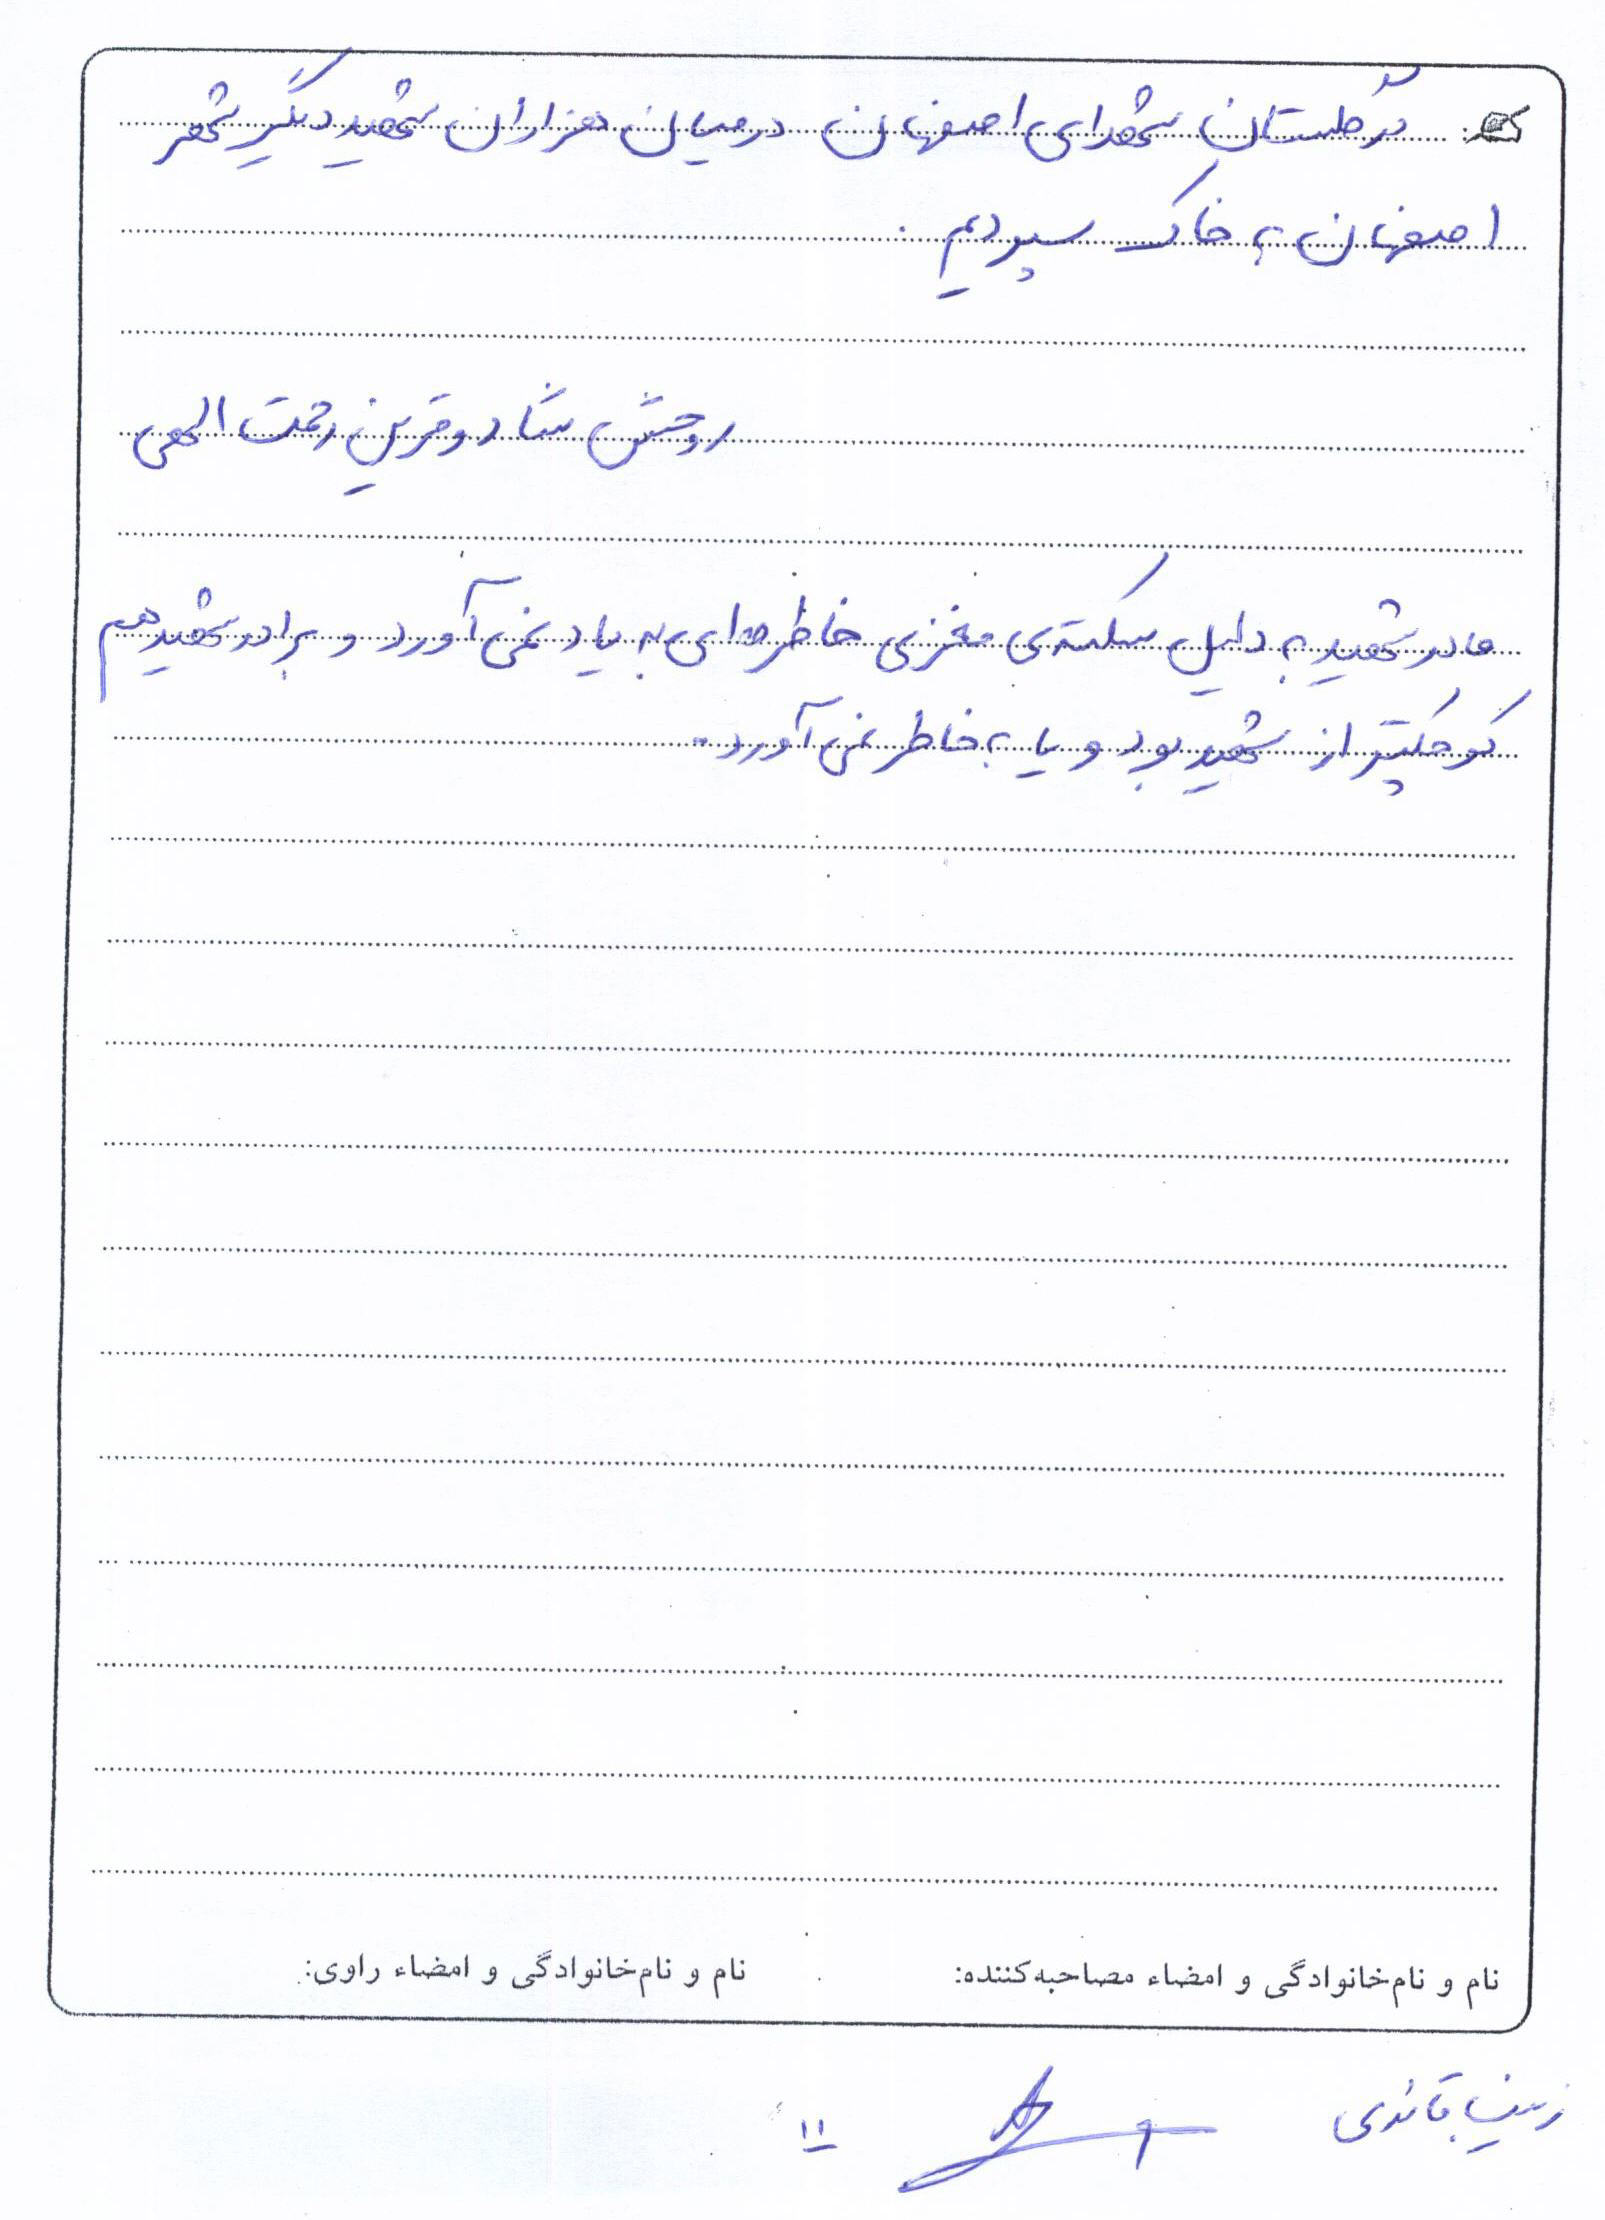 در گلستان شهدای اصفهان در میان هزاران شهید دیگر شهر
اصفهان به خاک سپردیم.
روحش شاد و قرین رحمت الهی
مادر شهید به دلیل سکته‌ی مغزی خاطره‌ای به یاد نمی‌آورد و برادر شهید هم
کوچکتر از شهید بود و یا به خاطر نمی‌آورد..
نام و نام‌خانوادگی و امضاء مصاحبه‌کننده: نام و نام‌خانوادگی و امضاء راوی:
زینب قائدی
۱۱